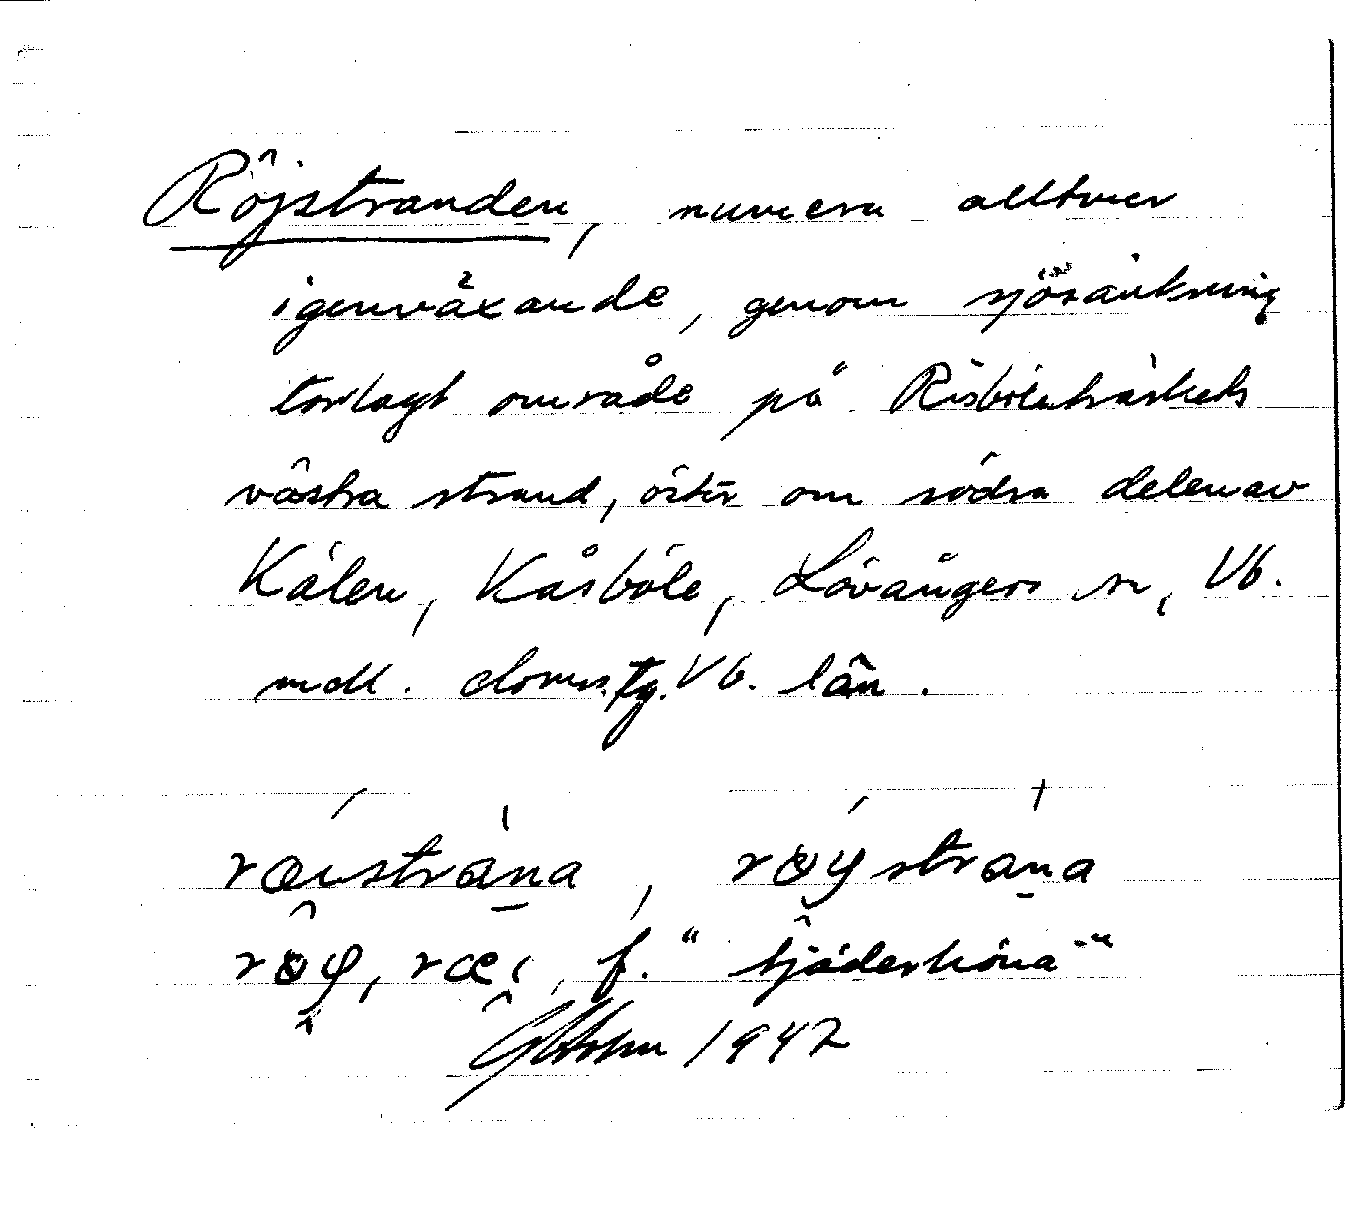 Röjstranden, numera alltmer
igenväxande, genom sjösänkning
torlagt område på Risböleträskets
västra strand, öster om södra delen av
Kålen, Kåsböle, Lövångers sn, Vb.
mell. doms. tg. Vb. län.
rœistrána, røystrána
røy, rœi, f. "tjäderhöna"
1942